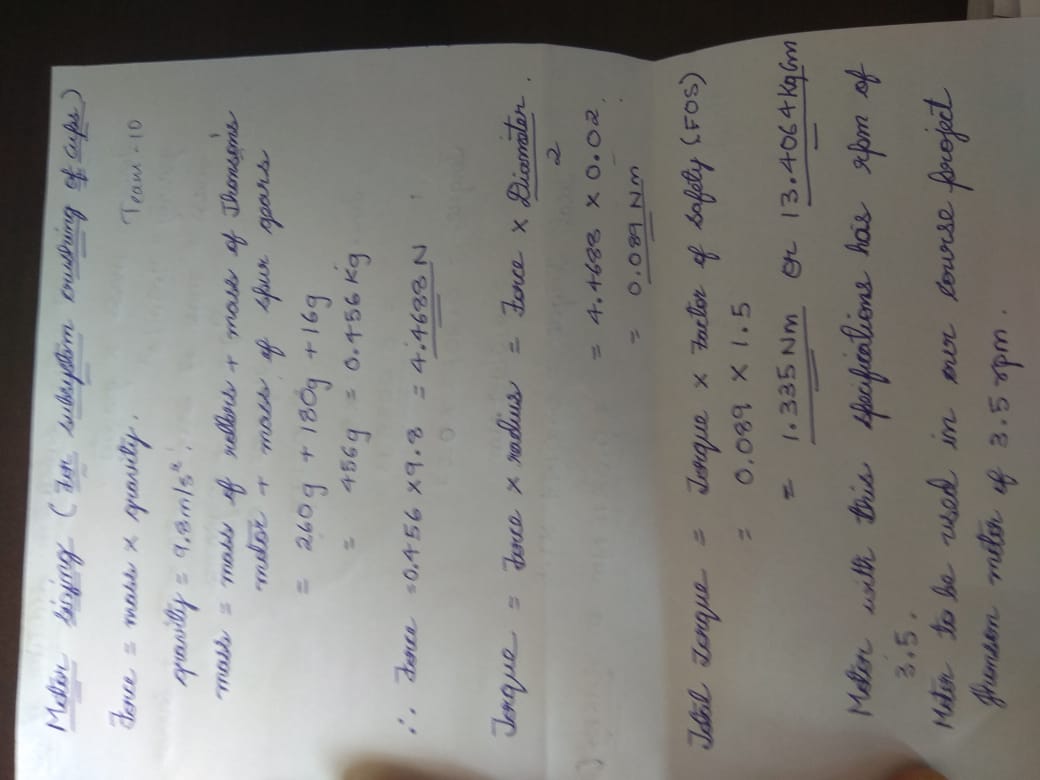 Motor sizing (For subsystem crushing of cups)
Team-10
Force = mass x gravity.
gravity = 9.8m/s².
mass = mass of rollers + mass of Jhonson's
motor + mass of spur gears
= 260g + 180g + 16g
= 456g = 0.456 Kg
∴ Force = 0.456 x 9.8 = 4.4688 N
Torque = Force x radius = Force x Diameter
2
= 4.4688 x 0.02
= 0.089 Nm
Total Torque = Torque x Factor of safety (FOS)
= 0.089 x 1.5
= 1.335 Nm or 13.4064 Kgcm
Motor with this specifications has rpm of
3.5.
Motor to be used in our course project
Jhonson motor of 3.5 rpm.